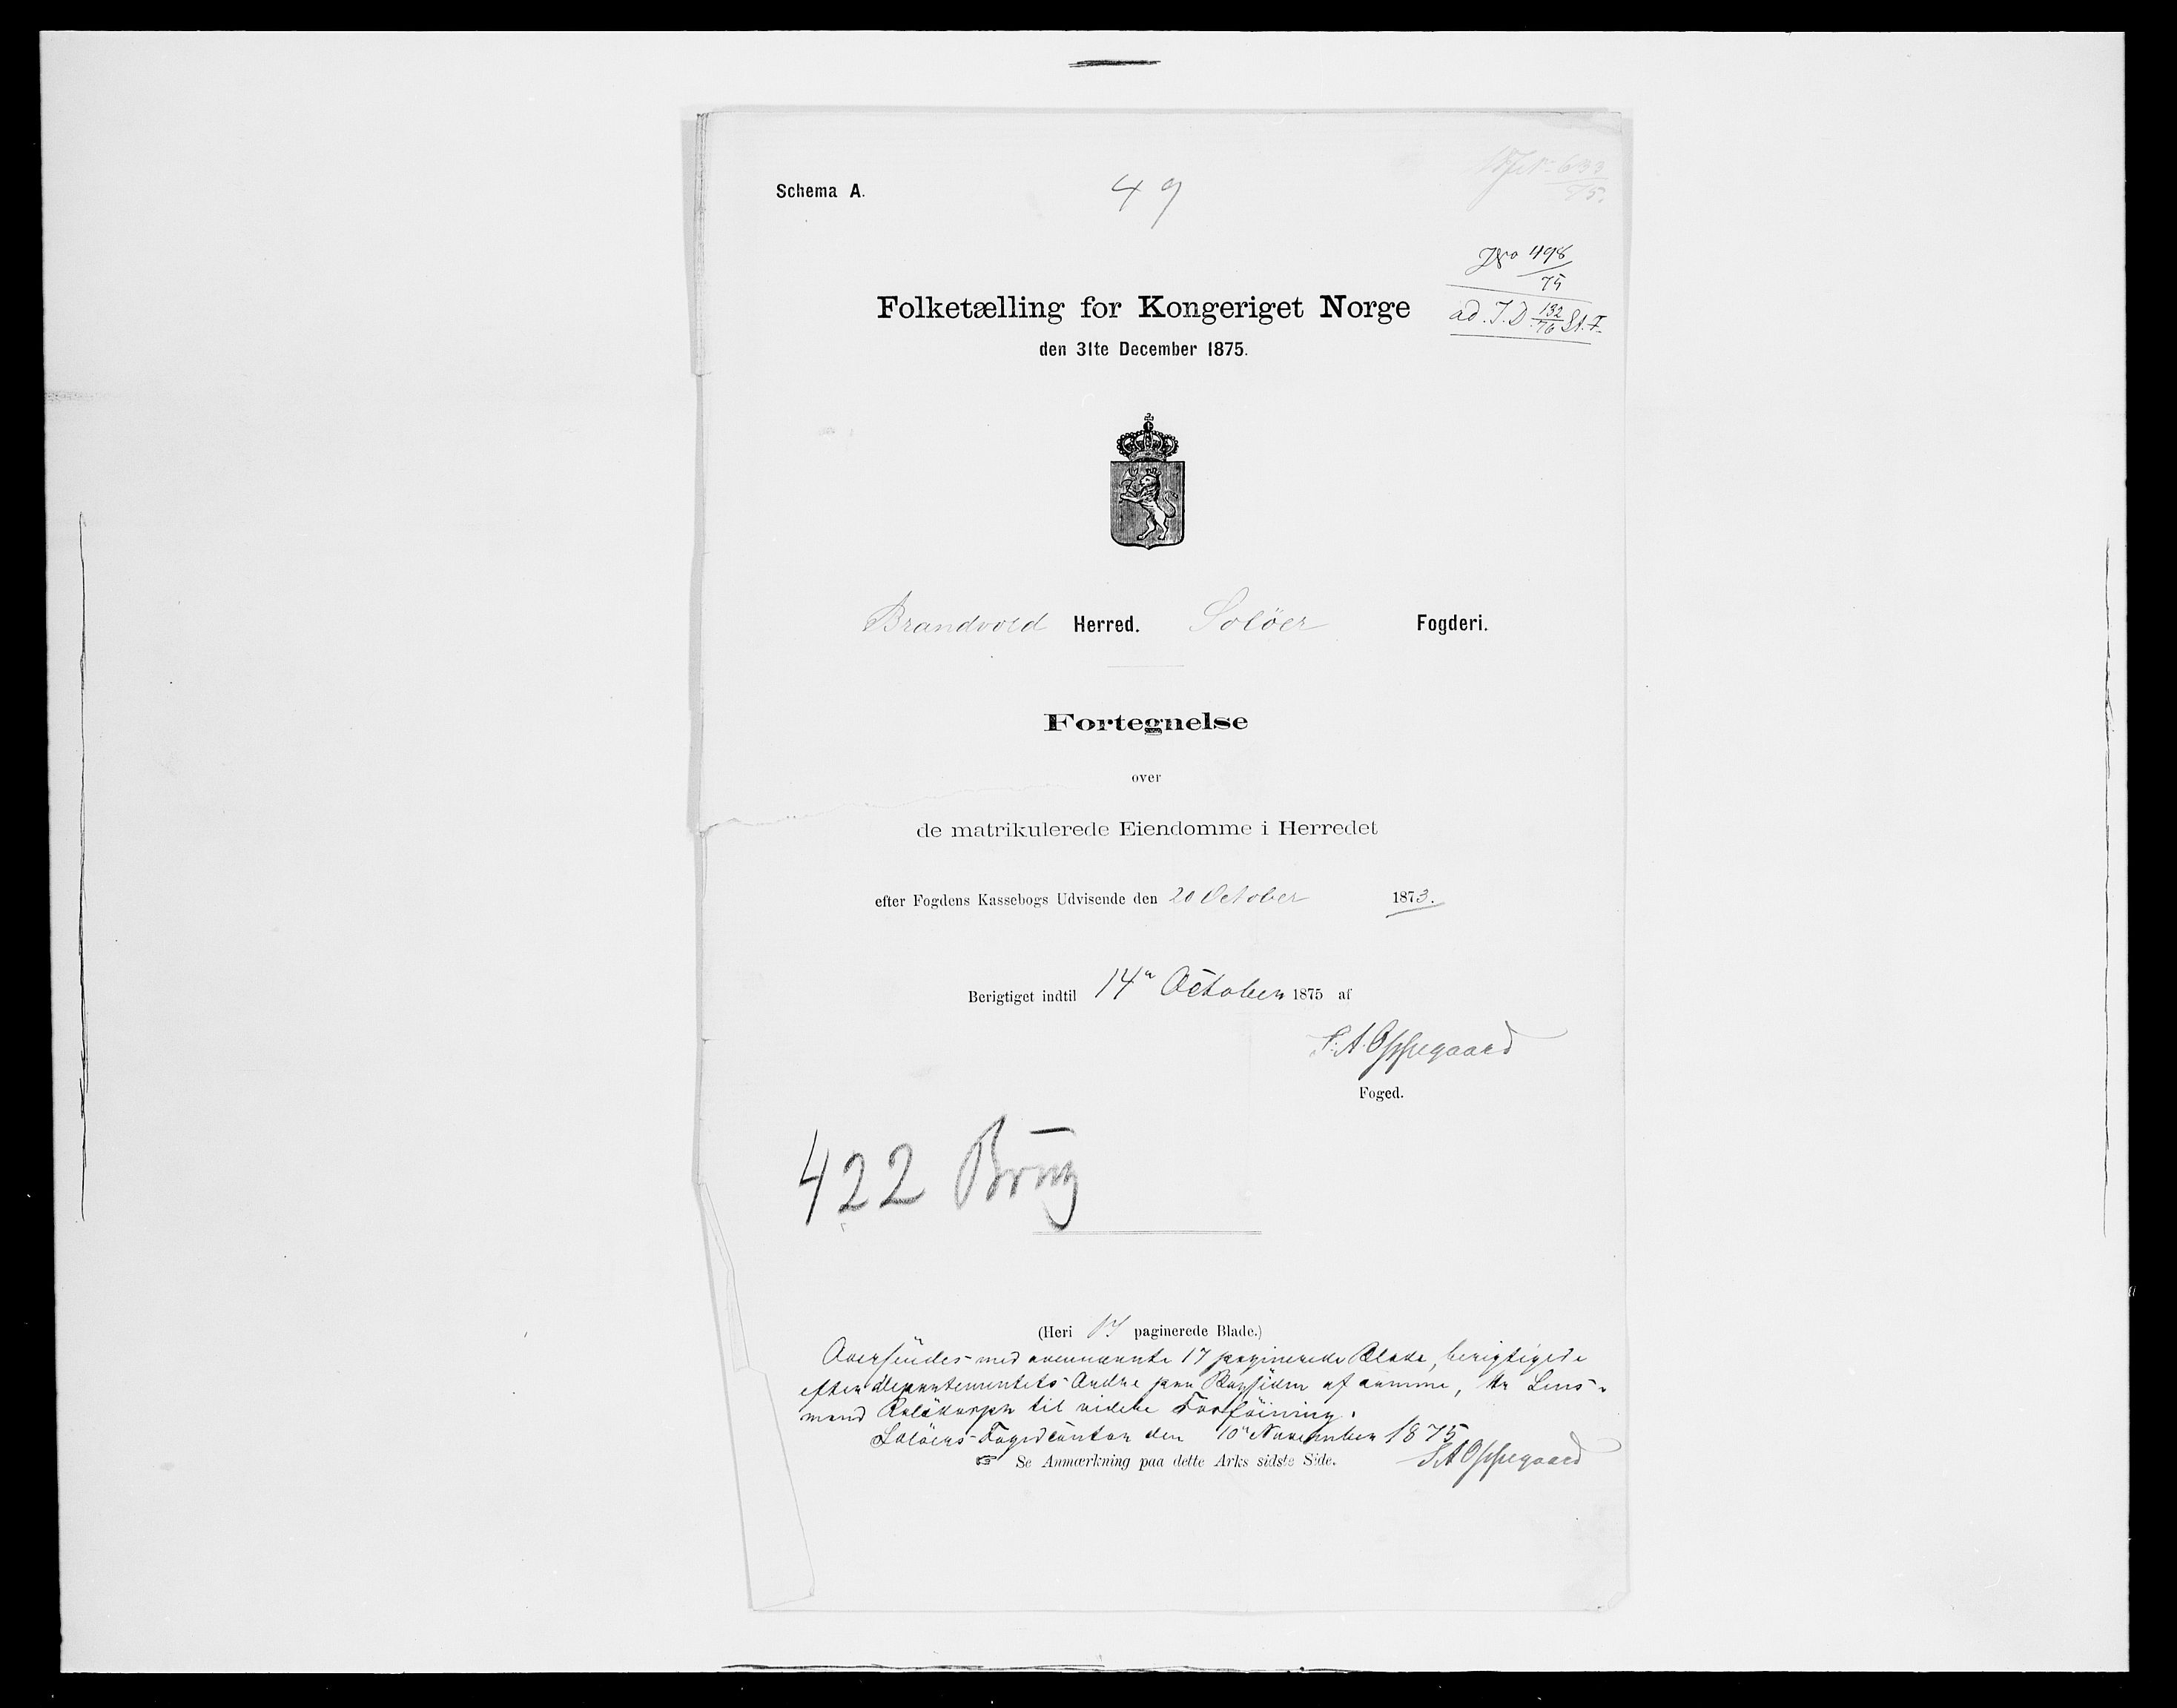 Schema A.
49
No 498
75
Folketælling for Kongeriget Norge
ad. J. D 132/76 St. F.
den 31te December 1875.
Brandvold Herred. Solöer Fogderi.
Fortegnelse
over
de matrikulerede Eiendomme i Herredet
efter Fogdens Kassebogs Udvisende den 20 October 1873.
Berigtiget indtil 14n October 1875 af
S. A. Oppegaard
Foged.
422 Brug
(Heri 17 paginerede Blade.)
Oversendes med ovennævnte 17 paginerede Blade, berigtigede
efter Departementets Ordre paa Bagsiden af samme, Hr Lens-
mand til videre Forföining.
Solöers Fogedcontor den 10n November 1875
Se Anmærkning paa dette Arks sidste Side. S A Oppegaard